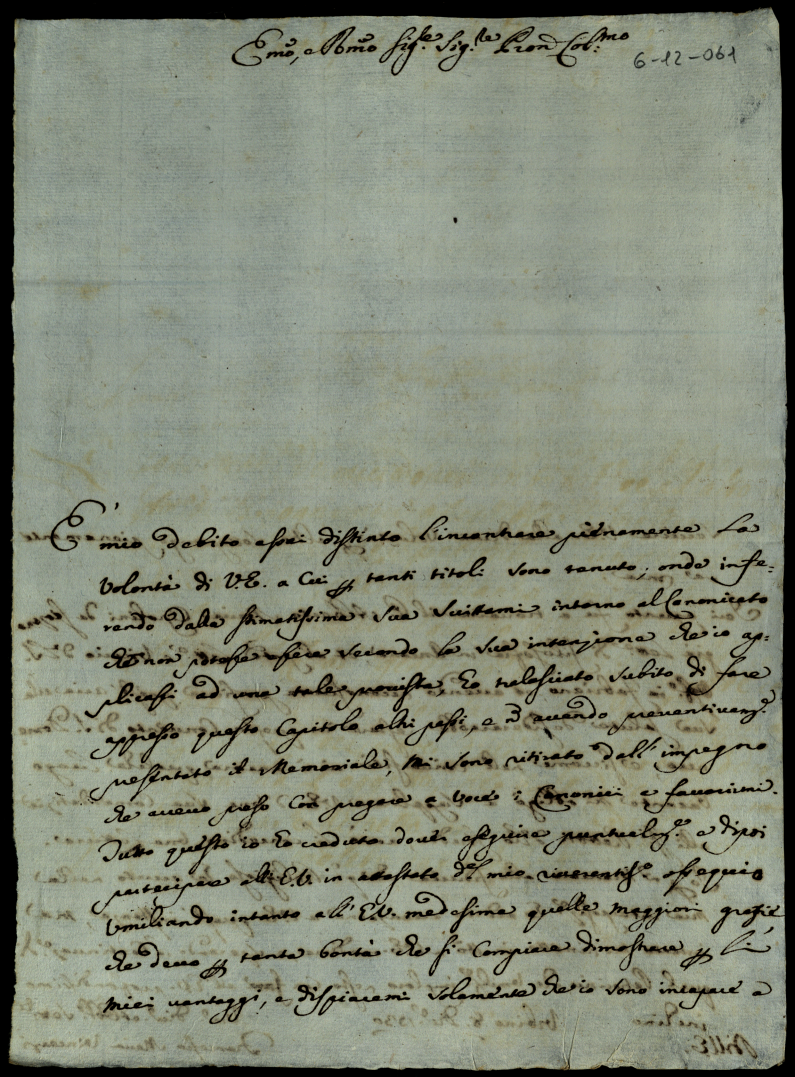 Emo, e Rmo Sigre Sigre Pron Colmo
6-12-061
E' mio debito assai distinto l'incontrare pienamente la
volontà di V.E. a Cui per tanti titoli sono tenuto; onde infe-
rendo dalla stimatissima sua scrittami intorno al Canonicato
che non potesse essere secondo la sua intenzione che io ap-
plicassi ad una tale provista, ho tralasciato subito di fare
appresso questo Capitolo altri passi, e nõ avendo preventivamte
presentato il Memoriale, mi sono ritirato dall'impegno
che avevo preso con pregare a voce i Canonici a favorirmi.
Tutto questo io ho creduto dover eseguire puntualmte e dipoi
partecipare all'E.V. in attestato del mio riverentissmo ossequio
umiliando intanto all'E.V. medesima quelle maggiori grazie
che devo per tanta bontà che si compiace dimostrare per li
miei vantaggi, e dispiacemi solamente che io sono incapace a